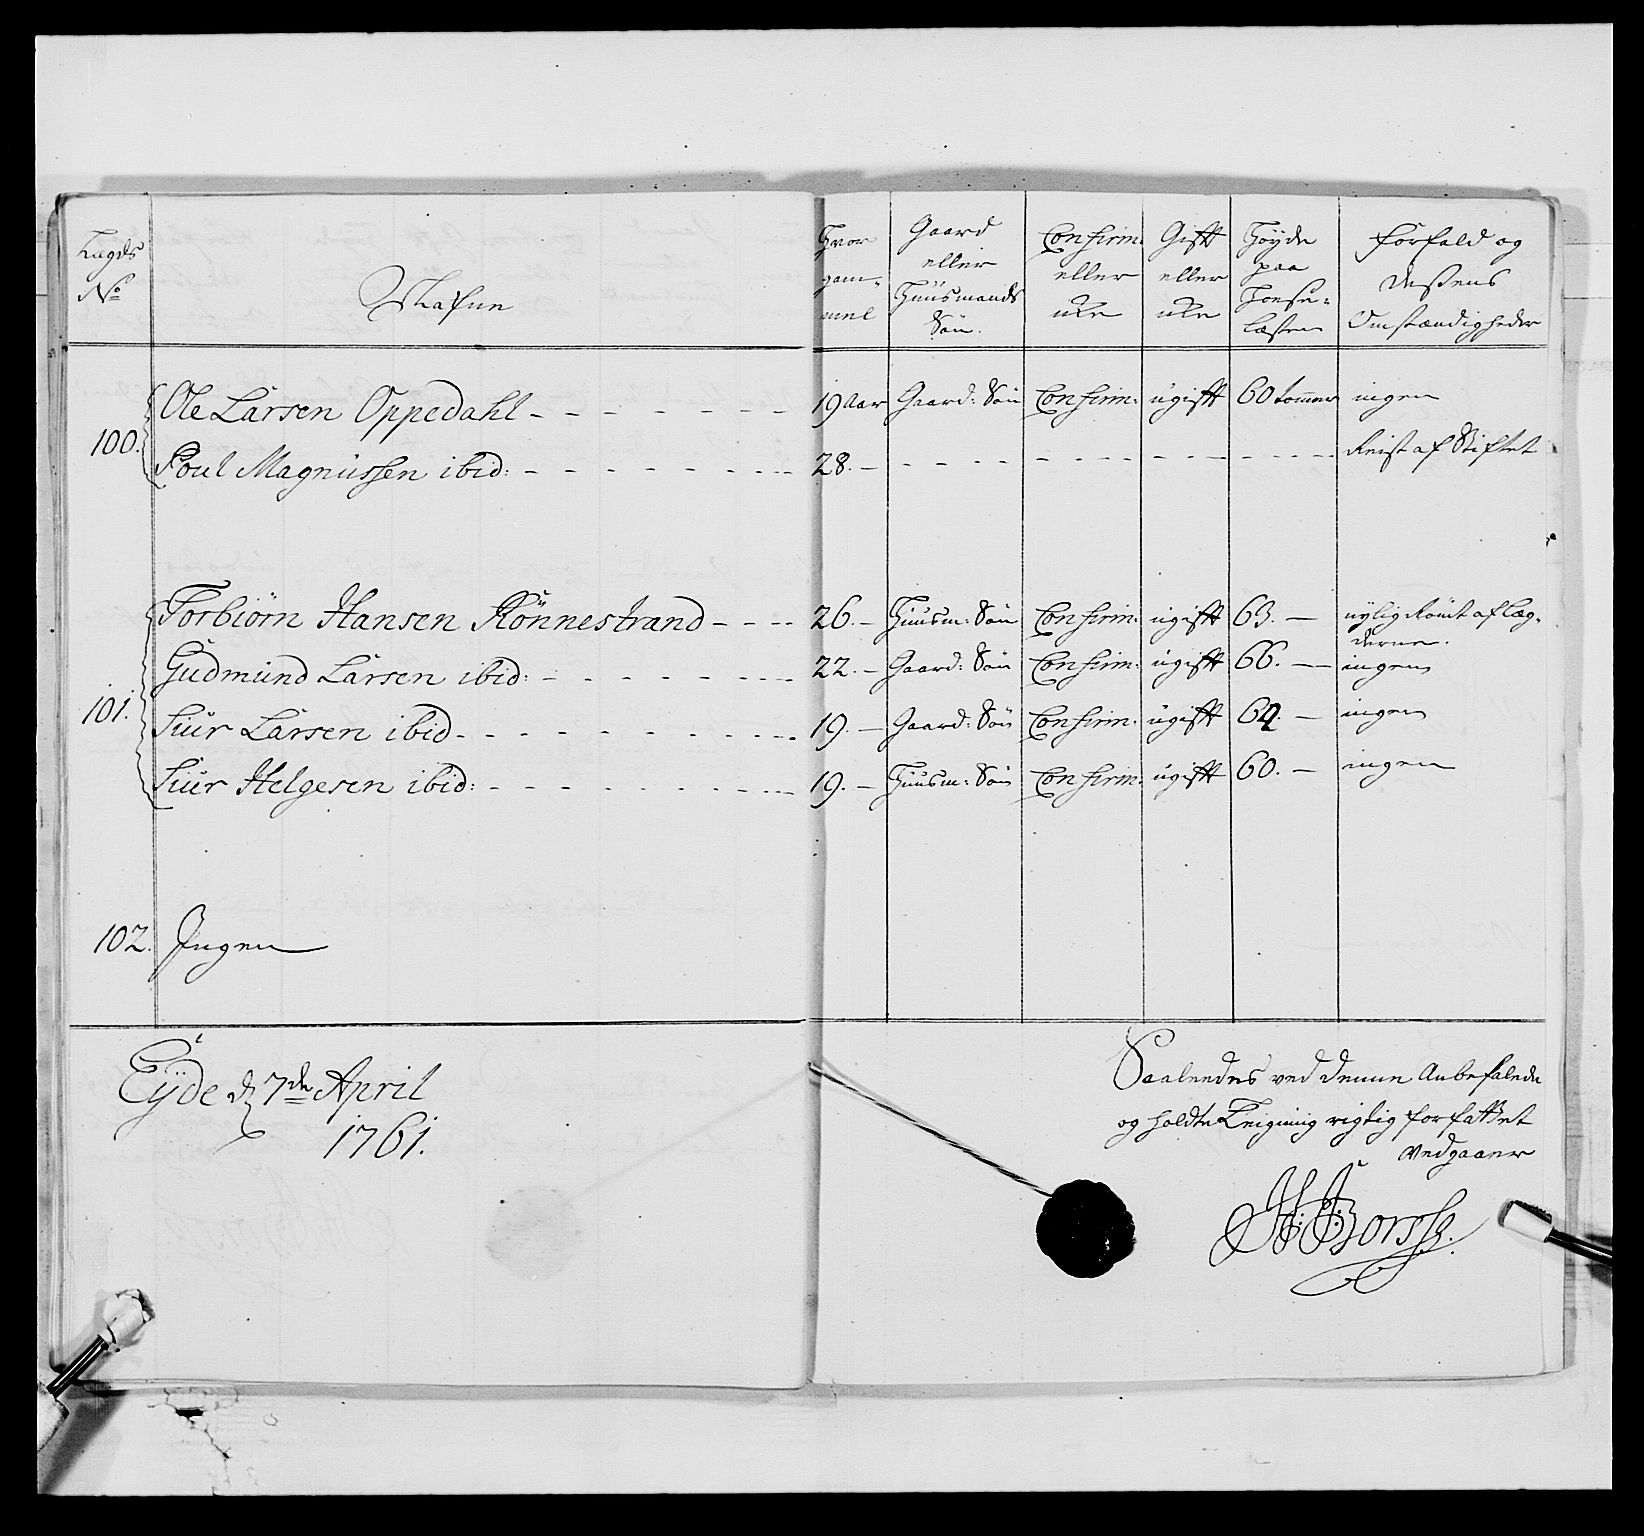 Lægds
No
Nafne
Hvor
gam-
mel
Gaard
eller
Huusmands
Søn.
Confirm:
eller
eke
Gift
eller
eke
Høyde
paa
Hose-
læsten
Forfald og
desens
Omstændigheder
100. Ole Larsen Oppedahl - - - - - - - 19 aar Gaard: Søn Confirm: ugifft 60 tommer ingen
Poul Magnussen ibid: - - - - - - - 28. - - - - - - - - - - - Reist af Stiftet
101. Torbiørn Hansen Rönnestrand - - - - 26. - Huusm: Søn Confirm: ugifft 63. - nylig Römt af læg-
derne.
Gudmund Larsen ibid: - - - - - - - 22. - Gaard: Søn Confirm: ugifft 66. - ingen
Siur Larsen ibid - - - - - - - - - 19. - Gaard: Søn Confirm: ugifft 62. - ingen
Siur Helgesen ibid: - - - - - - - - 19. - Huusm: Søn Confirm: ugifft 60. - ingen
102. Ingen
Eyde d 7de April
1761.
Saaledes ved denne Anbefalede
og holdte Leigning rigtig forfattet
Vedgaaer